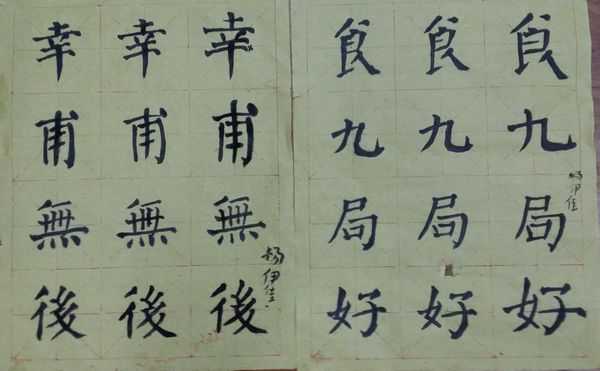 幸 幸 幸
甫 甫 甫
無 無 無
後 後 後
杨伊佳
食 食 食
九 九 九
局 局 局
好 好 好
杨伊佳